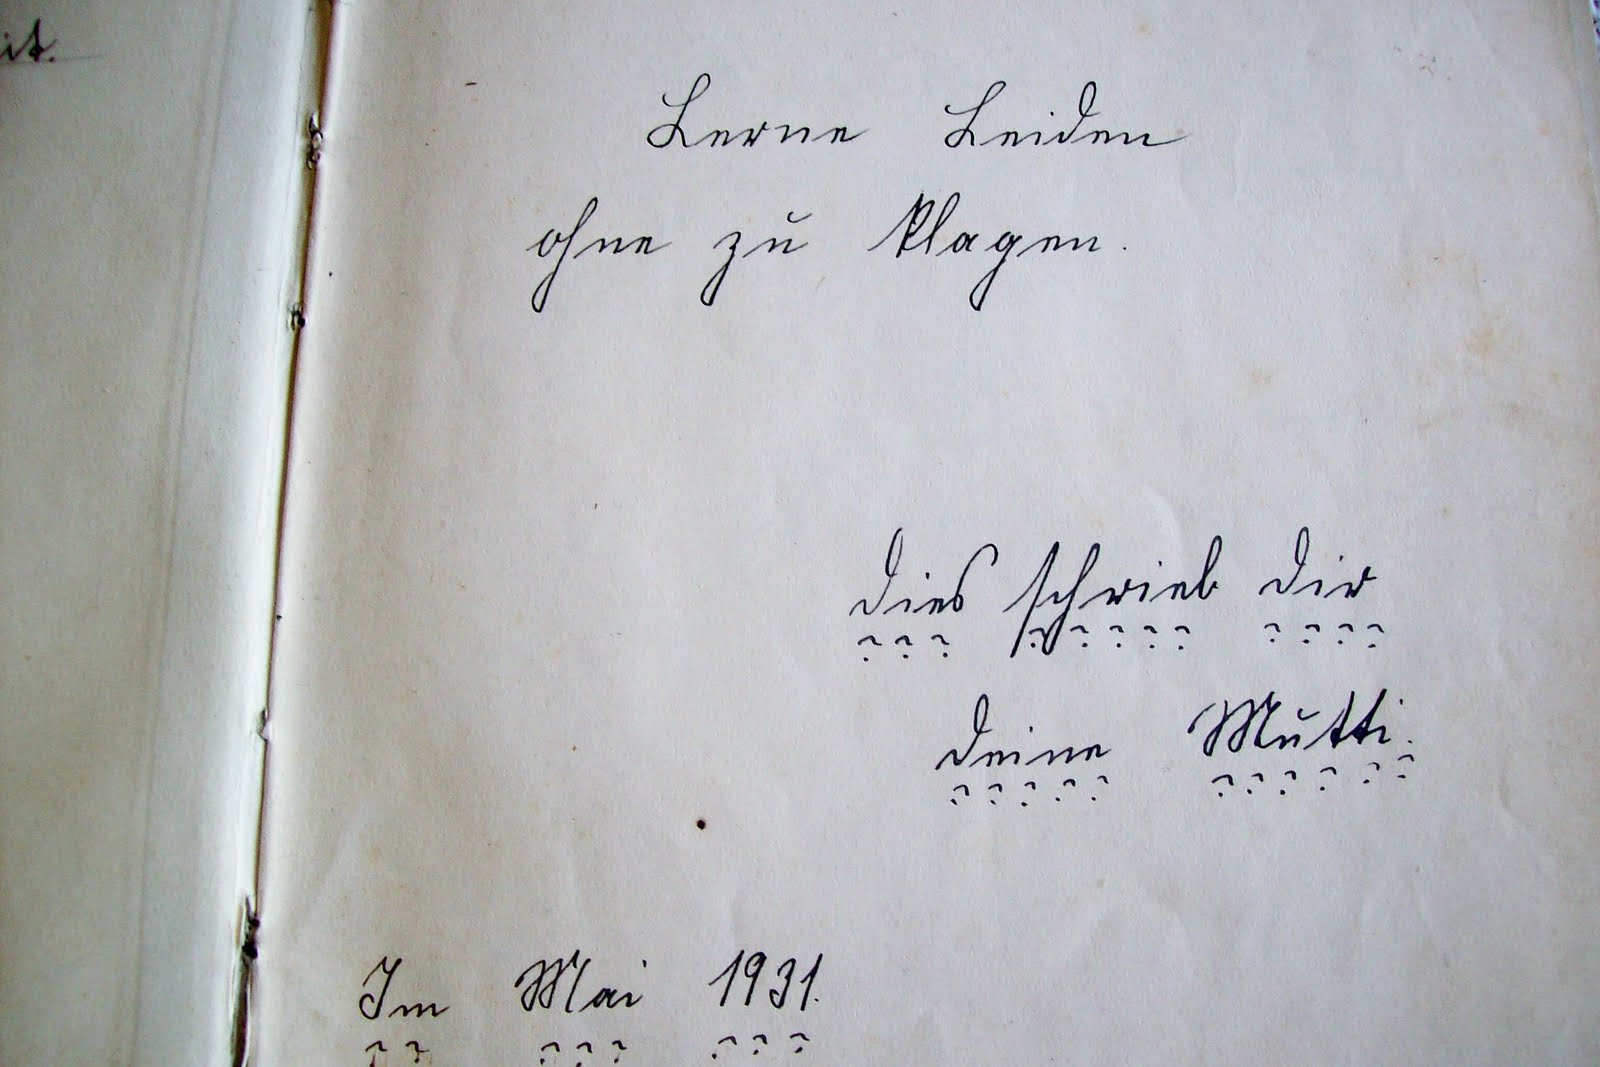 it.
Lerne Leiden
ohne zu klagen.
dies schrieb dir
deine Mutti.
Im Mai 1931.